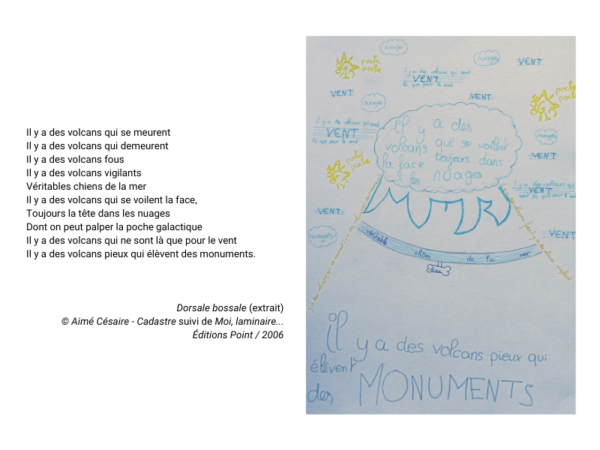 Il y a des volcans qui se meurent
Il y a des volcans qui demeurent
Il y a des volcans fous
Il y a des volcans vigilants
Véritables chiens de la mer
Il y a des volcans qui se voilent la face,
Toujours la tête dans les nuages
Dont on peut palper la poche galactique
Il y a des volcans qui ne sont là que pour le vent
Il y a des volcans pieux qui élèvent des monuments.
Dorsale bossale (extrait)
© Aimé Césaire - Cadastre suivi de Moi, laminaire...
Éditions Point / 2006
nuages
VENT
VENT
VENT
VENT
il y a des
volcans que se voilent
la face toujours dans
les nuages
VENT
VENT
VENT
VENT
VENT
véritable chien de la mer
il
y a des volcans pieux qui
élèvent
des MONUMENTS